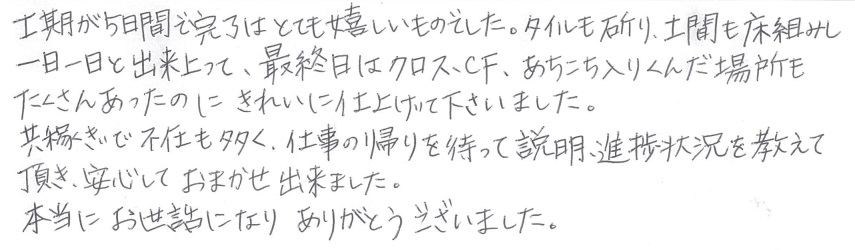 工期が5日間で完了はとても嬉しいものでした。タイルも斫り、土間も床組みし
一日一日と出来上って、最終日はクロス、CF、あちこち入りくんだ場所も
たくさんあったのに きれいに仕上げて下さいました。
共稼ぎで不在も多く、仕事の帰りを待って説明、進捗状況を教えて
頂き、安心しておまかせ出来ました。
本当に お世話になり ありがとうございました。